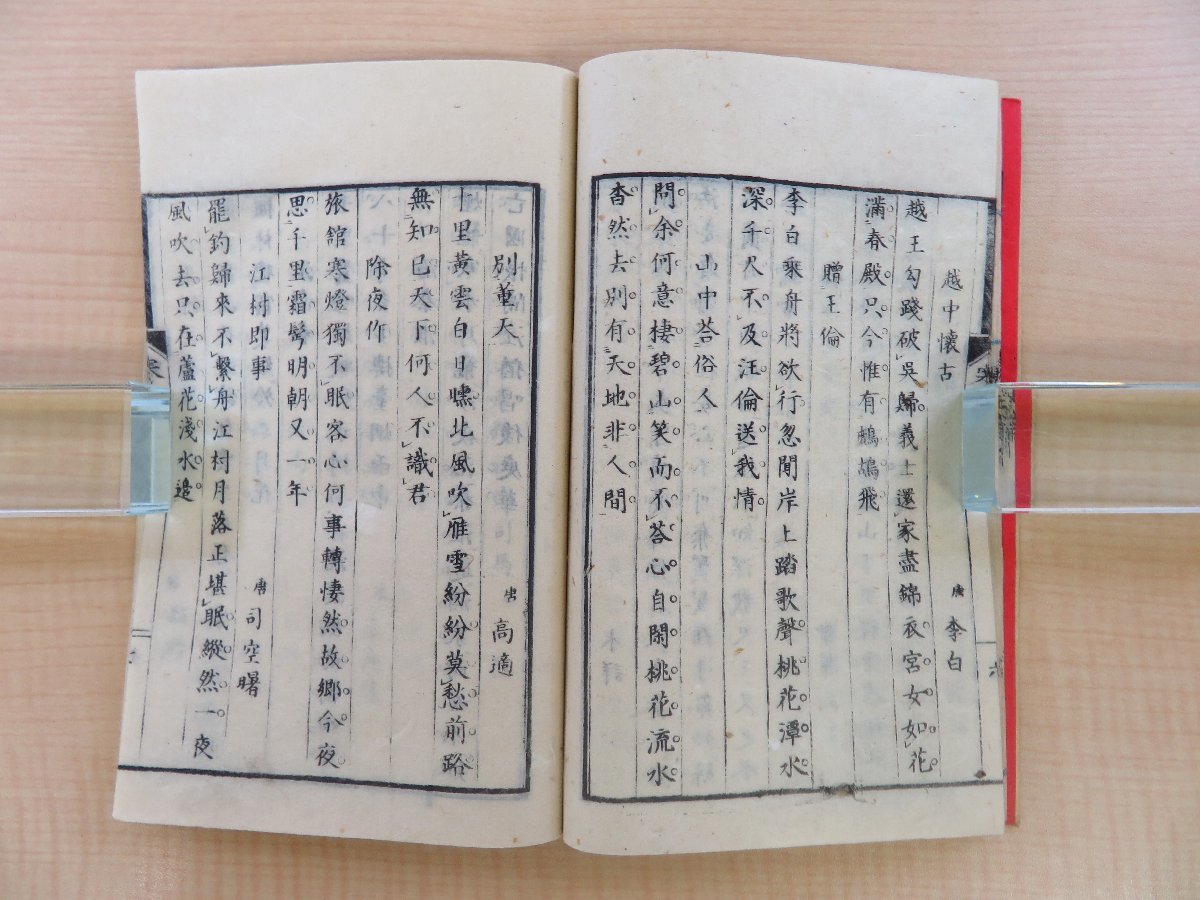 越中懷古 唐 李白
越王勾踐破吳歸義士還家盡錦衣宮女如花
滿春殿只今惟有鷓鴣飛
贈王倫
李白乘舟將欲行忽聞岸上踏歌聲桃花潭水
深千尺不及汪倫送我情
山中荅俗人
問余何意棲碧山笑而不荅心自閑桃花流水
杳然去別有天地非人間
別董大 唐 高適
十里黃雲白日曛北風吹雁雪紛紛莫愁前路
無知已天下何人不識君
除夜作
旅館寒燈獨不眠客心何事轉悽然故鄉今夜
思千里霜鬢明朝又一年
江村即事 唐 司空曙
罷釣歸來不繫舟江村月落正堪眠縱然一夜
風吹去只在蘆花淺水邊
六